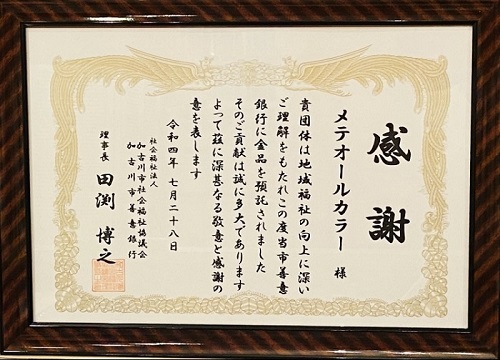 感謝
メテオールカラー 様
貴団体は地域福祉の向上に深い
ご理解をもたれこの度当市善意
銀行に金品を預託されました
そのご貢献は誠に多大であります
よって茲に深甚なる敬意と感謝の
意を表します
令和四年 七月二十八日
社会福祉法人
加古川市社会福祉協議会
加古川市善意銀行
理事長 田渕 博之